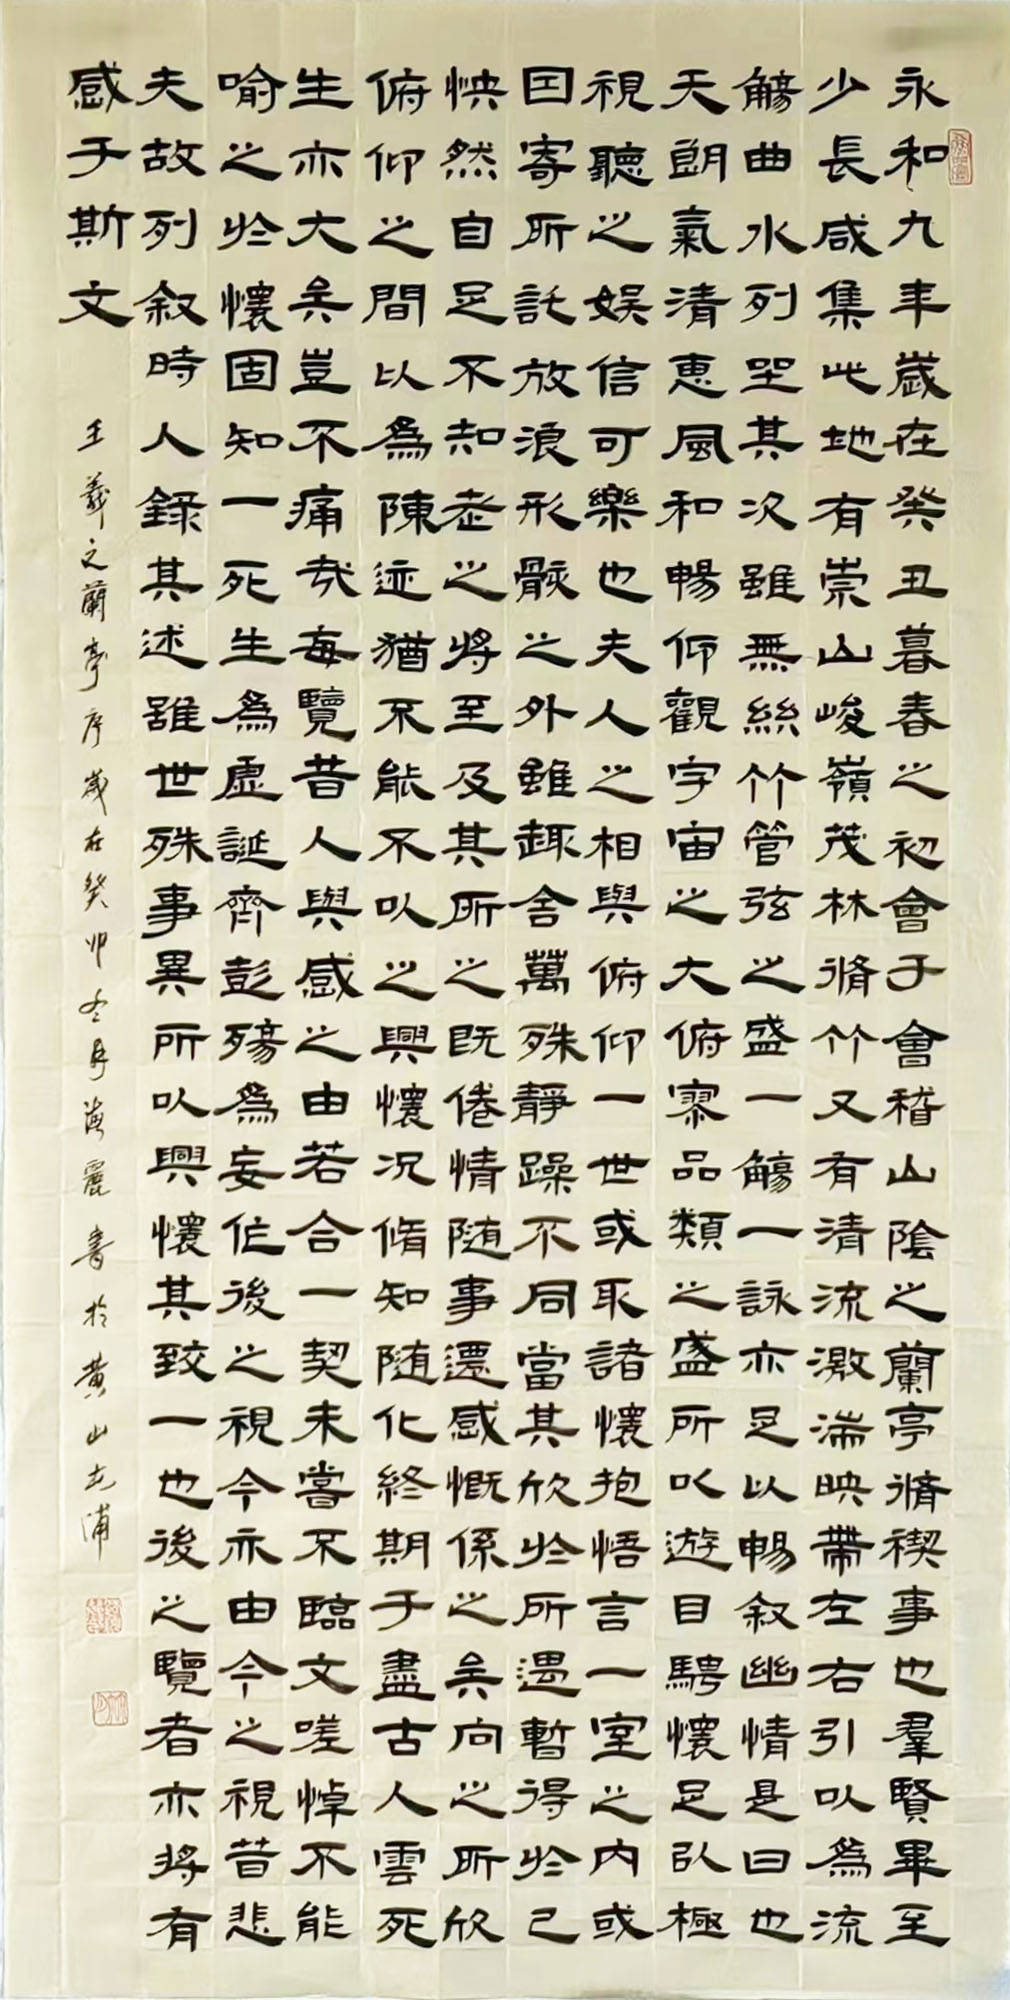 永和九年歲在癸丑暮春之初會于會稽山陰之蘭亭脩禊事也羣賢畢至
少長咸集此地有崇山峻嶺茂林脩竹又有清流激湍映帶左右引以爲流
觴曲水列坐其次雖無絲竹管弦之盛一觴一詠亦足以暢叙幽情是日也
天朗氣清惠風和暢仰觀宇宙之大俯察品類之盛所以遊目騁懷足以極
視聽之娛信可樂也夫人之相與俯仰一世或取諸懷抱悟言一室之内或
因寄所託放浪形骸之外雖趣舍萬殊靜躁不同當其欣於所遇暫得於己
怏然自足不知老之將至及其所之既倦情随事遷感慨係之矣向之所欣
俯仰之間以爲陳迹猶不能不以之興懷况脩知随化終期于盡古人雲死
生亦大矣豈不痛哉每覽昔人與感之由若合一契未嘗不臨文嗟悼不能
喻之於懷固知一死生爲虛誕齊彭殤爲妄作後之視今亦由今之視昔悲
夫故列叙時人録其述雖世殊事異所以興懷其致一也後之覽者亦將有
感于斯文
王羲之蘭亭序歲在癸卯冬月海麗書於黃山